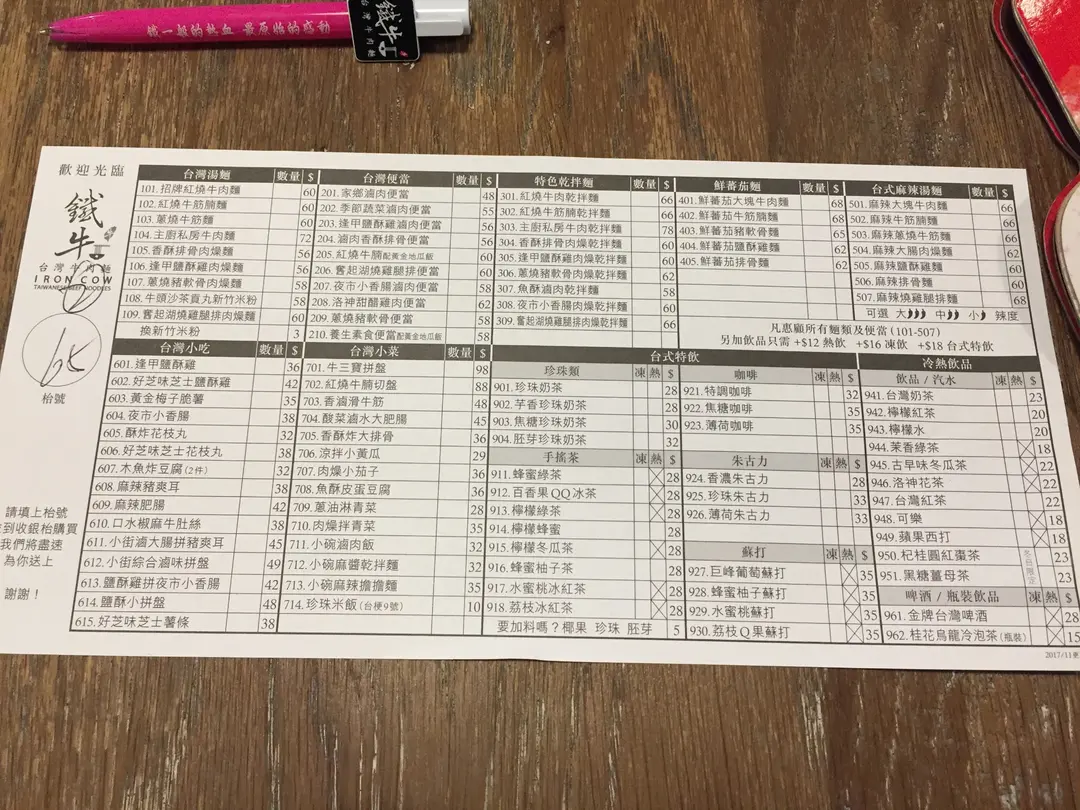 鐵一般的熱血 最原始的感動
鐵牛
台灣牛肉麵
歡迎光臨
鐵牛
台灣牛肉麵
IRON COW
TAIWANESE BEEF NOODLES
65
枱號
請填上枱號
到收銀枱購買
我們將盡速
為你送上
謝謝！
台灣湯麵 數量 $
101.招牌紅燒牛肉麵 60
102.紅燒牛筋腩麵 60
103.蔥燒牛筋麵 60
104.主廚私房牛肉麵 72
105.香酥排骨肉燥麵 56
106.逢甲鹽酥雞肉燥麵 56
107.蔥燒豬軟骨肉燥麵 58
108.牛頭沙茶貢丸新竹米粉 58
109.舊起湖燒雞腿排肉燥麵 60
換新竹米粉 3
台灣便當 數量 $
201.家鄉滷肉便當 48
202.季節蔬菜滷肉便當 55
203.逢甲鹽酥雞滷肉便當 56
204.滷肉香酥排骨便當 56
205.紅燒牛腩配黃金地瓜飯 60
206.奮起湖燒雞腿排便當 60
207.夜市小香腸滷肉便當 58
208.洛神甜醋雞肉便當 62
209.蔥燒豬軟骨滷肉便當 60
210.養生素食便當配黃金地瓜飯 58
特色乾拌麵 數量 $
301.紅燒牛肉乾拌麵 66
302.紅燒牛筋腩乾拌麵 66
303.主廚私房牛肉乾拌麵 78
304.香酥排骨肉燥乾拌麵 60
305.逢甲鹽酥雞肉燥乾拌麵 60
306.蔥燒豬軟骨肉燥乾拌麵 62
307.魚酥滷肉乾拌麵 58
308.夜市小香腸肉燥乾拌麵 60
309.奮起湖燒雞腿排肉燥乾拌麵 66
鮮蕃茄麵 數量 $
401.鮮蕃茄大塊牛肉麵 68
402.鮮蕃茄牛筋腩麵 68
403.鮮蕃茄豬軟骨麵 65
404.鮮蕃茄鹽酥雞麵 62
405.鮮蕃茄排骨麵 62
台式麻辣湯麵 數量 $
501.麻辣大塊牛肉麵 66
502.麻辣牛筋腩麵 66
503.麻辣蔥燒牛筋麵 66
504.麻辣大腸肉燥麵 62
505.麻辣鹽酥雞麵 60
506.麻辣排骨麵 60
507.麻辣燒雞腿排麵 68
可選 大 中 小 辣度
凡惠顧所有麵類及便當 (101-507)
另加飲品只需 +$12 熱飲 +$16 凍飲 +$18 台式特飲
台灣小吃 數量 $
601.逢甲鹽酥雞 36
602.好芝味芝士鹽酥雞 42
603.黃金梅子脆薯 35
604.夜市小香腸 38
605.酥炸花枝丸 32
606.好芝味芝士花枝丸 38
607.木魚炸豆腐(2件) 32
608.麻辣豬爽耳 38
609.麻辣肥腸 42
610.口水椒麻牛肚絲 38
611.小街滷大腸拼豬爽耳 45
612.小街綜合滷味拼盤 49
613.鹽酥雞拼夜市小香腸 42
614.鹽酥小拼盤 48
615.好芝味芝士薯條 38
台灣小菜 數量 $
701.牛三寶拼盤 98
702.紅燒牛腩切盤 88
703.香滷滑牛筋 48
704.酸菜滷水大肥腸 45
705.香酥炸大排骨 36
706.涼拌小黃瓜 29
707.肉燥小茄子 36
708.魚酥皮蛋豆腐 36
709.蔥油淋青菜 28
710.肉燥拌青菜 35
711.小碗滷肉飯 32
712.小碗麻醬乾拌麵 32
713.小碗麻辣擔擔麵 35
714.珍珠米飯(台梗9號) 10
台式特飲
珍珠類 凍 熱 $
901.珍珠奶茶 28
902.芋香珍珠奶茶 28
903.焦糖珍珠奶茶 30
904.胚芽珍珠奶茶 32
手搖茶 凍 熱 $
911.蜂蜜綠茶 28
912.百香果QQ冰茶 28
913.檸檬綠茶 28
914.檸檬蜂蜜 28
915.檸檬冬瓜茶 28
916.蜂蜜柚子茶 28
917.水蜜桃冰紅茶 28
918.荔枝冰紅茶 28
要加料嗎？椰果 珍珠 胚芽 5
咖啡 凍 熱 $
921.特調咖啡 32
922.焦糖咖啡 35
923.薄荷咖啡 35
朱古力 凍 熱 $
924.香濃朱古力 28
925.珍珠朱古力 33
926.薄荷朱古力 33
蘇打 凍 熱 $
927.巨峰葡萄蘇打 35
928.蜂蜜柚子蘇打 35
929.水蜜桃蘇打 35
930.荔枝Q果蘇打 35
冷熱飲品
飲品 / 汽水 凍 熱 $
941.台灣奶茶 23
942.檸檬紅茶 20
943.檸檬水 20
944.茉香綠茶 18
945.古早味冬瓜茶 22
946.洛神花茶 22
947.台灣紅茶 22
948.可樂 18
949.蘋果西打 18
950.杞桂圓紅棗茶 23
951.黑糖薑母茶 23
冬日限定
啤酒 / 瓶裝飲品 凍 熱 $
961.金牌台灣啤酒 28
962.桂花烏龍冷泡茶(瓶裝) 15
2017/11更